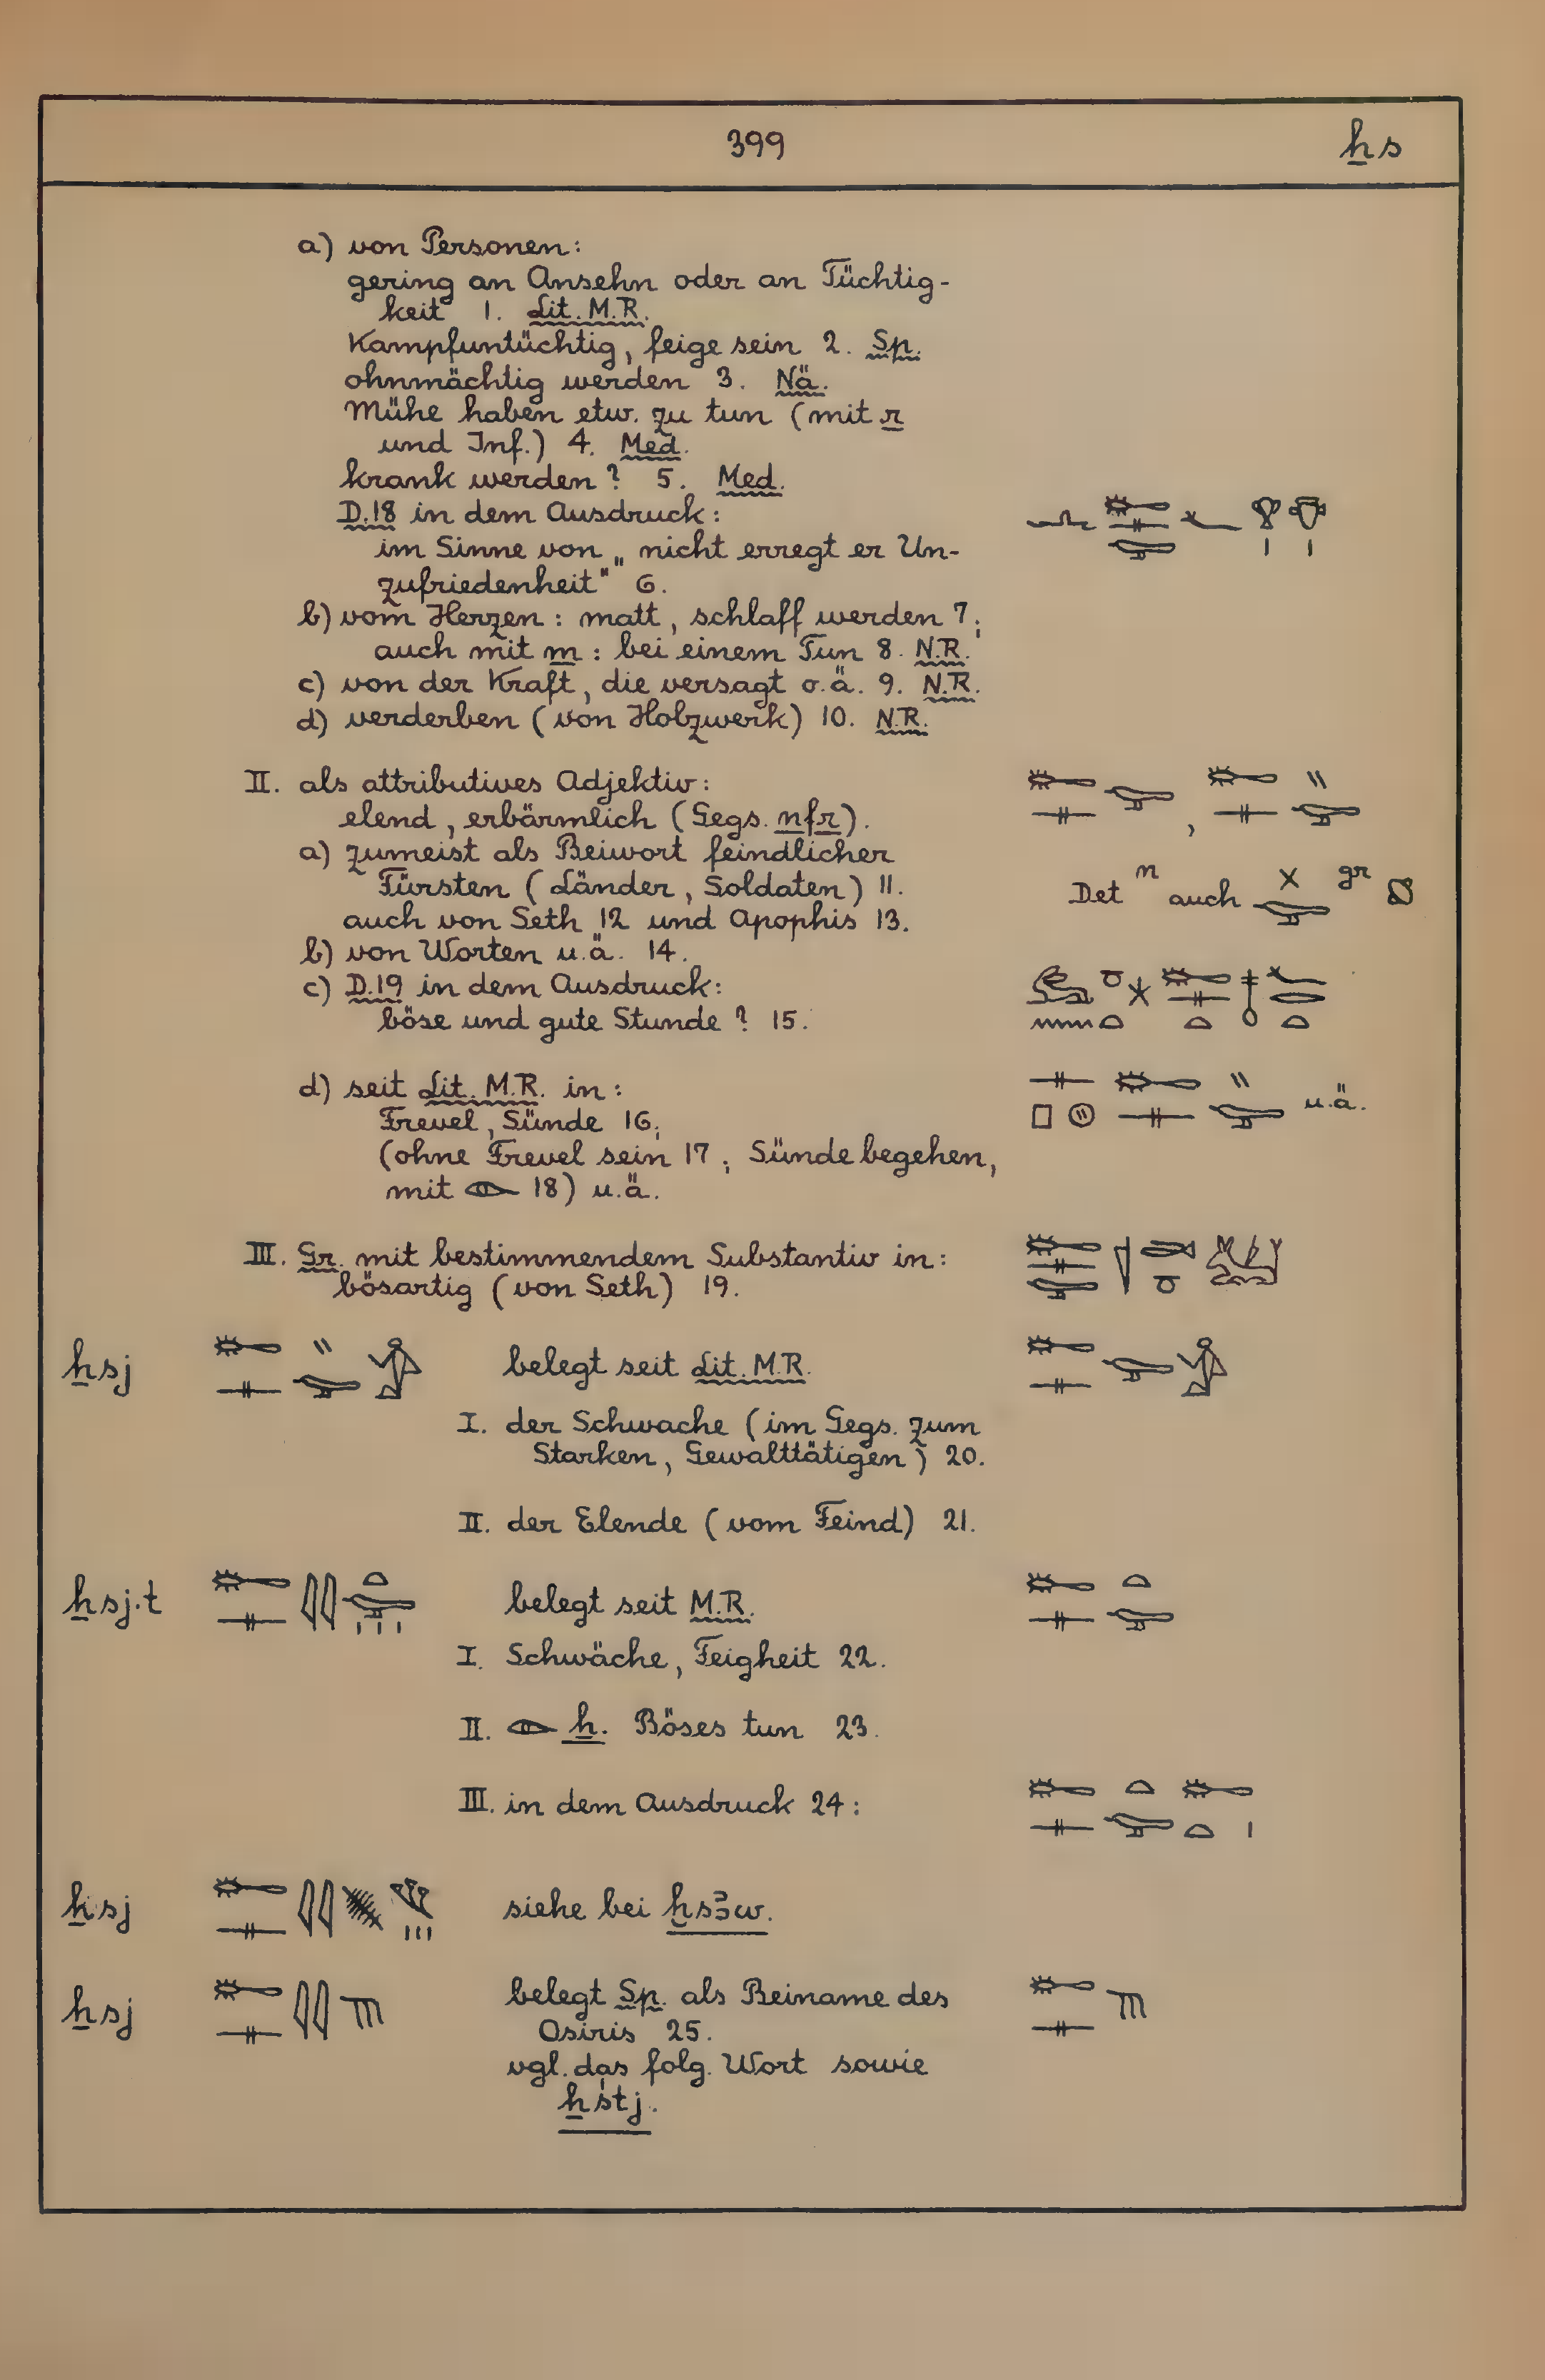 399
ẖs
a) von Personen:
gering an Ansehn oder an Tüchtig-
keit 1. Lit. M.R.
Kampfuntüchtig, feige sein 2. Sp.
ohnmächtig werden 3. Nä.
Mühe haben etw. zu tun (mit r
und Inf.) 4. Med.
krank werden? 5. Med.
D.18 in dem Ausdruck:
im Sinne von „nicht erregt er Un-
zufriedenheit" 6.
b) vom Herzen: matt, schlaff werden 7;
auch mit m: bei einem Tun 8. N.R.
c) von der Kraft, die versagt o.ä. 9. N.R.
d) verderben (von Holzwerk) 10. N.R.
II. als attributives Adjektiv:
elend, erbärmlich (Gegs. nfr).
a) zumeist als Beiwort feindlicher
Fürsten (Länder, Soldaten) 11.
Det n auch gr
auch von Seth 12 und Apophis 13.
b) von Worten u.ä. 14.
c) D.19 in dem Ausdruck:
böse und gute Stunde? 15.
d) seit Lit. M.R. in: u.ä.
Frevel, Sünde 16;
(ohne Frevel sein 17; Sünde begehen,
mit 18) u.ä.
III. Gr. mit bestimmendem Substantiv in:
bösartig (von Seth) 19.
ẖsj belegt seit Lit. M.R.
I. der Schwache (im Gegs. zum
Starken, Gewalttätigen) 20.
II. der Elende (vom Feind) 21.
ẖsj.t belegt seit M.R.
I. Schwäche, Feigheit 22.
II. ẖ. Böses tun 23.
III. in dem Ausdruck 24:
ẖsj siehe bei ẖsꜣw.
ẖsj belegt Sp. als Beiname des
Osiris 25.
vgl. das folg. Wort sowie
ẖśtj.